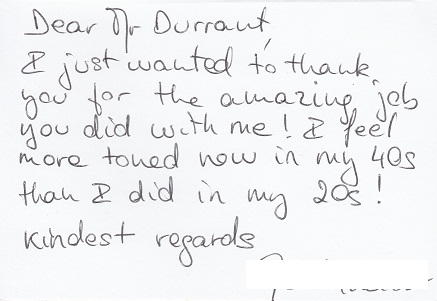 Dear Mr Durrant,
I just wanted to thank
you for the amazing job
you did with me! I feel
more toned now in my 40s
than I did in my 20s!
Kindest regards